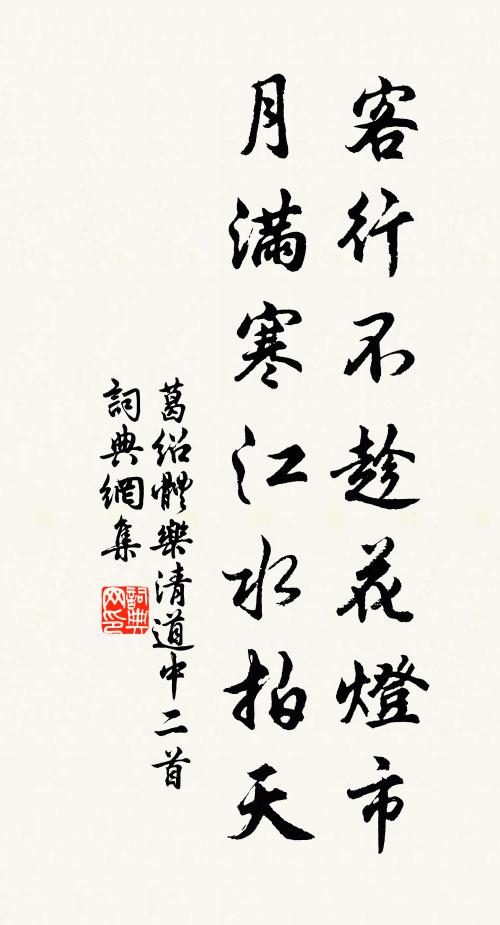 客行不趁花燈市
月滿寒江水拍天
葛紹體樂清道中二首
詞典網集
詞典网印